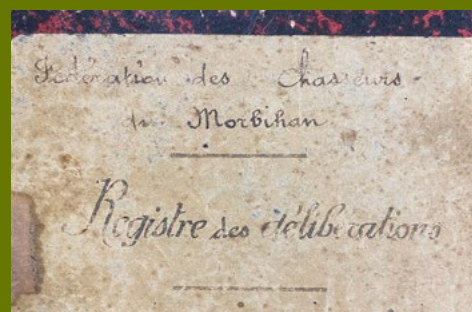 Fédération des Chasseurs
du Morbihan
Registre des délibérations